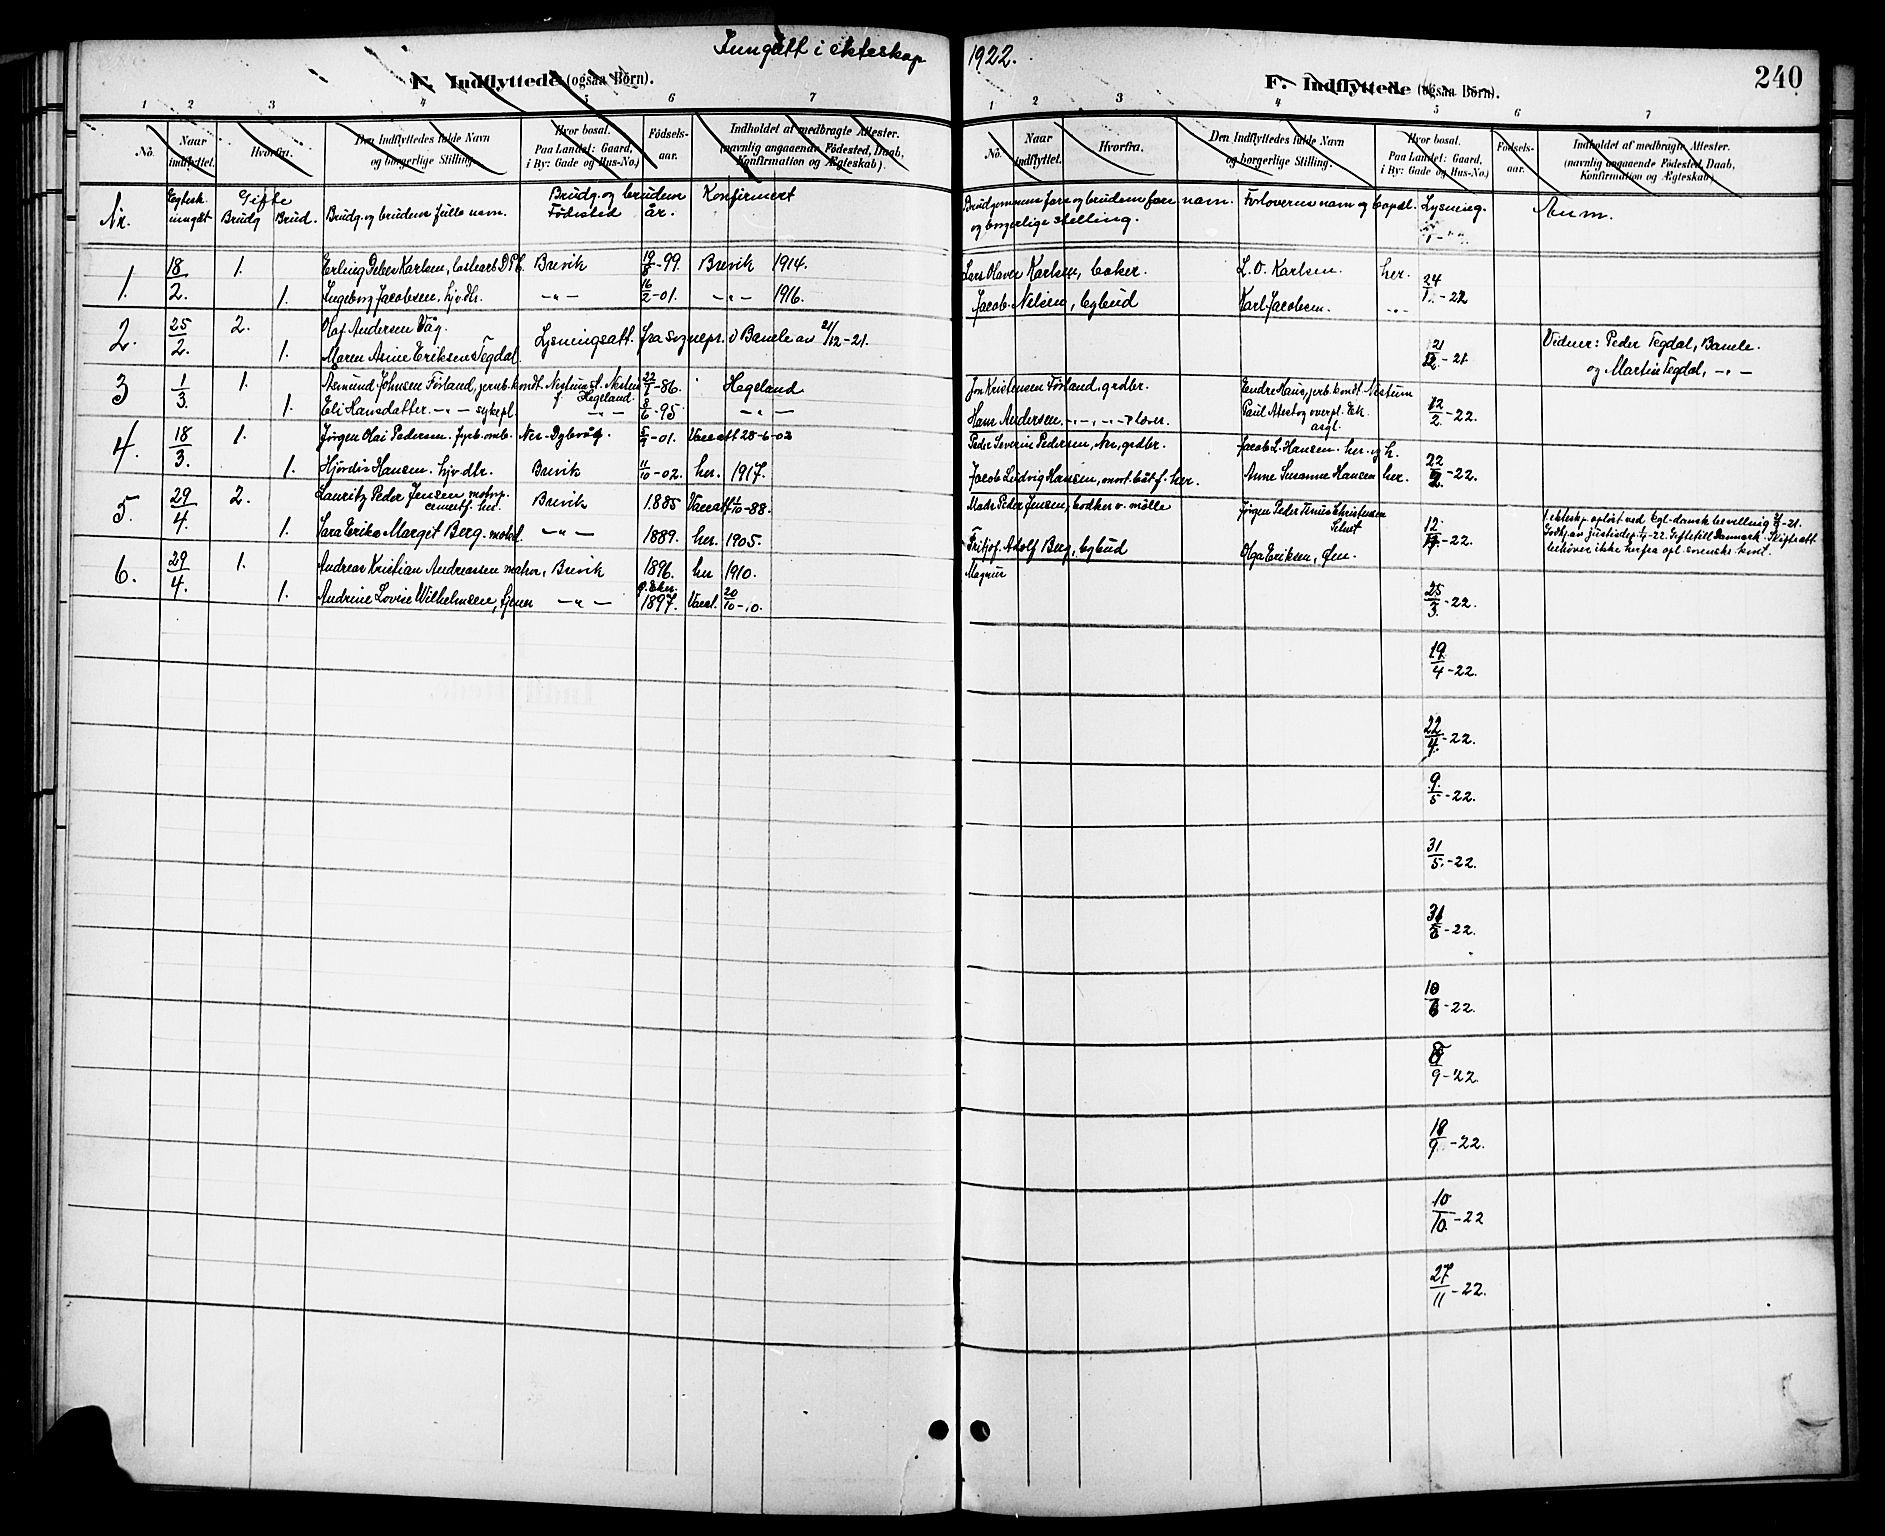 Inngått i ekteskap 1922.
240
F. Indflyttede (ogsaa Børn).
1 2 3 4 5 6 7
No.
Naar indflyttet.
Hvorfra.
Den Indflyttedes fulde Navn og borgerlige Stilling.
Hvor bosat. Paa Landet: Gaard, i By: Gade og Hus-No.)
Fødsels-aar.
Indholdet af medbragte Attester. (navnlig angaaende Fødested, Daab, Konfirmation og Ægteskab).
Nr.
Egtesk. inngåt
Gifte
Brudg. Brud.
Brudg. og brudens fulle navn.
Brudg. og brudens Fødested år.
Konfirmert
1. 18/2. 1. Erling Peder Karlsen, D.P.C. Brevik 19/8-99. Brevik 1914.
1. Ingeborg Jacobsen, hjv.dtr. -"- 16/2-01. -"- 1916.
2. 25/2. 2. Olaf Andersen Våg. Lysningsatt. fra sognepr. i Bamle av 21/12-21.
1. Maren Asine Eriksen Tegdal.
3 1/3. 1. Åsmund Johnsen Förland, jernb.kondt. Nestun f. Hegeland 22/7-86. Hegeland
1. Eli Hansdatter. -"- sykepl. -"- 8/6-95. -"-
4. 18/3. 1. Jørgen Olai Pedersen. fyrb. Nes-Dybvåg. 5/7-01. Vacc.att 28-6-02
1. Hjördis Hansen. hjv.dtr. Brevik 11/10-02. her. 1917.
5. 29/4. 2. Lauritz Peder Jensen, cementf. her. Brevik 1885 Vacc.att 4/10-88.
1. Sara Erika Margit Berg. -"- 1889. her. 1905.
6. 29/4. 1. Andreas Kristian Andreassen matros, Brevik 1896. her 1910.
1. Andrine Lovise Wilhelmsen, tjener -"- 1897. Vacc. 20/10-10.
F. Indflyttede (ogsaa Børn).
1 2 3 4 5 6 7
No.
Naar indflyttet.
Hvorfra.
Den Indflyttedes fulde Navn og borgerlige Stilling.
Hvor bosat. Paa Landet: Gaard, i By: Gade og Hus-No.)
Fødsels-aar.
Indholdet af medbragte Attester. (navnlig angaaende Fødested, Daab, Konfirmation og Ægteskab)
Brudgommens fars og brudens fars navn og borgerlige stilling.
Forlovernes navn og bopæl.
Lysning.
Anm.
Lars Olaves Karlsen, baker. L. O. Karlsen. her. 24/1-22
Jacob Nilsen, bybud Karl Jacobsen. -"-
21/12-21 Vidner: Peder Tegdal, Bamle.
og Martin Tegdal, -"-
Jon Kristensen Förland, grdbr. Eendre Haus, jerb.kondt. Nestum
Hans Andersen. -"- Paul overpl. Ek. 12/2-22.
Peder Severin Pedersen, Nes, grdbr. Jacob L. Hansen. her. og h.
Jacob Ludvig Hansen, her. Anne Susanne Hansen her. 22/2-22.
Mads Peder Jensen, bödker v. mölle Jörgen Peder Tinus Christensen
Fritjof Adolf Berg, bybud Olga Eriksen, Øen. 12/4-22.
1. ektesk. opløst ved kgl. dansk bevilling
behöver ikke herfra
Magnus
25/3-22.
19/4-22.
22/4-22.
9/5-22.
31/5-22.
31/5-22.
10/6-22.
9-22.
18/9-22.
10/10-22
27/11-22.